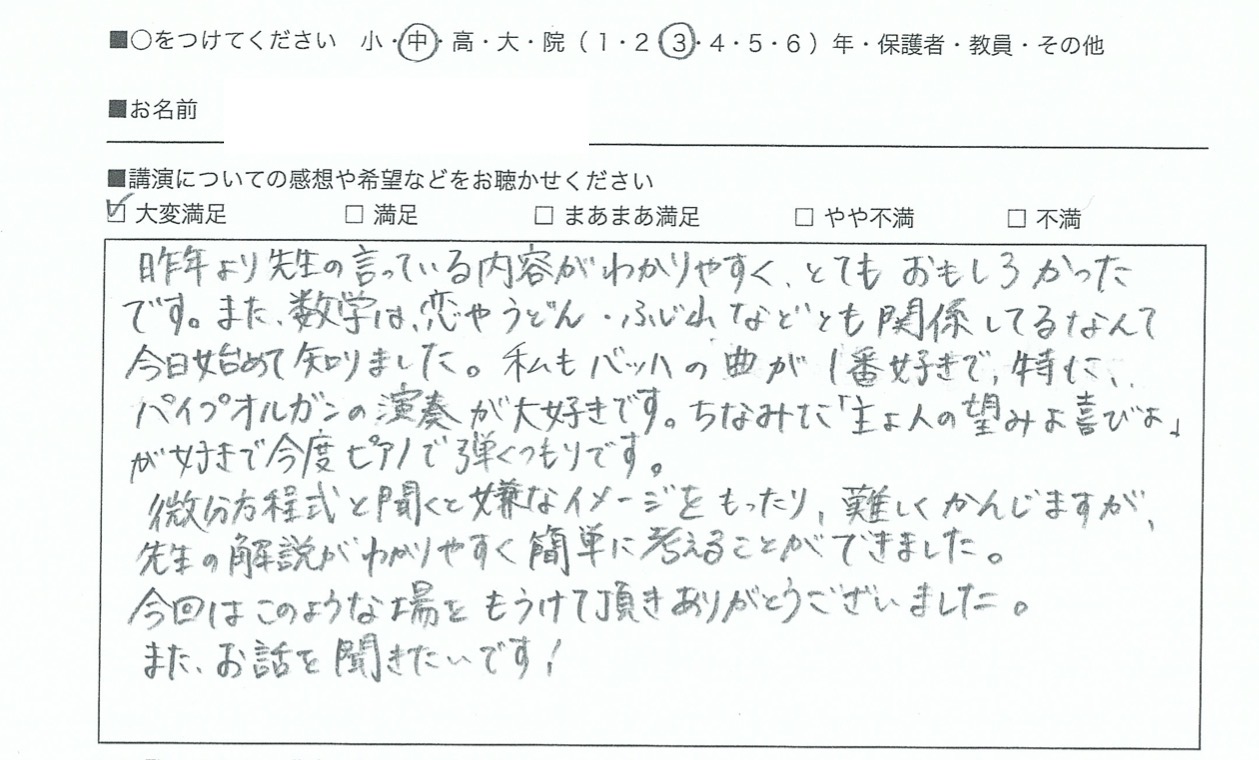 ■○をつけてください 小・中・高・大・院（1・2・3・4・5・6）年・保護者・教員・その他
■お名前
■講演についての感想や希望などをお聴かせください
☑ 大変満足 □ 満足 □ まあまあ満足 □ やや不満 □ 不満
昨年より先生の言っている内容がわかりやすく、とてもおもしろかった
です。また、数学は、恋やうどん・ふじ山などとも関係してるなんて
今日始めて知りました。私もバッハの曲が1番好きで、特に、
パイプオルガンの演奏が大好きです。ちなみに「主よ人の望みよ喜びよ」
が好きで今度ピアノで弾くつもりです。
微分方程式と聞くと嫌なイメージをもったり、難しくかんじますが、
先生の解説がわかりやすく簡単に考えることができました。
今回はこのような場をもうけて頂きありがとうございました。
また、お話を聞きたいです!